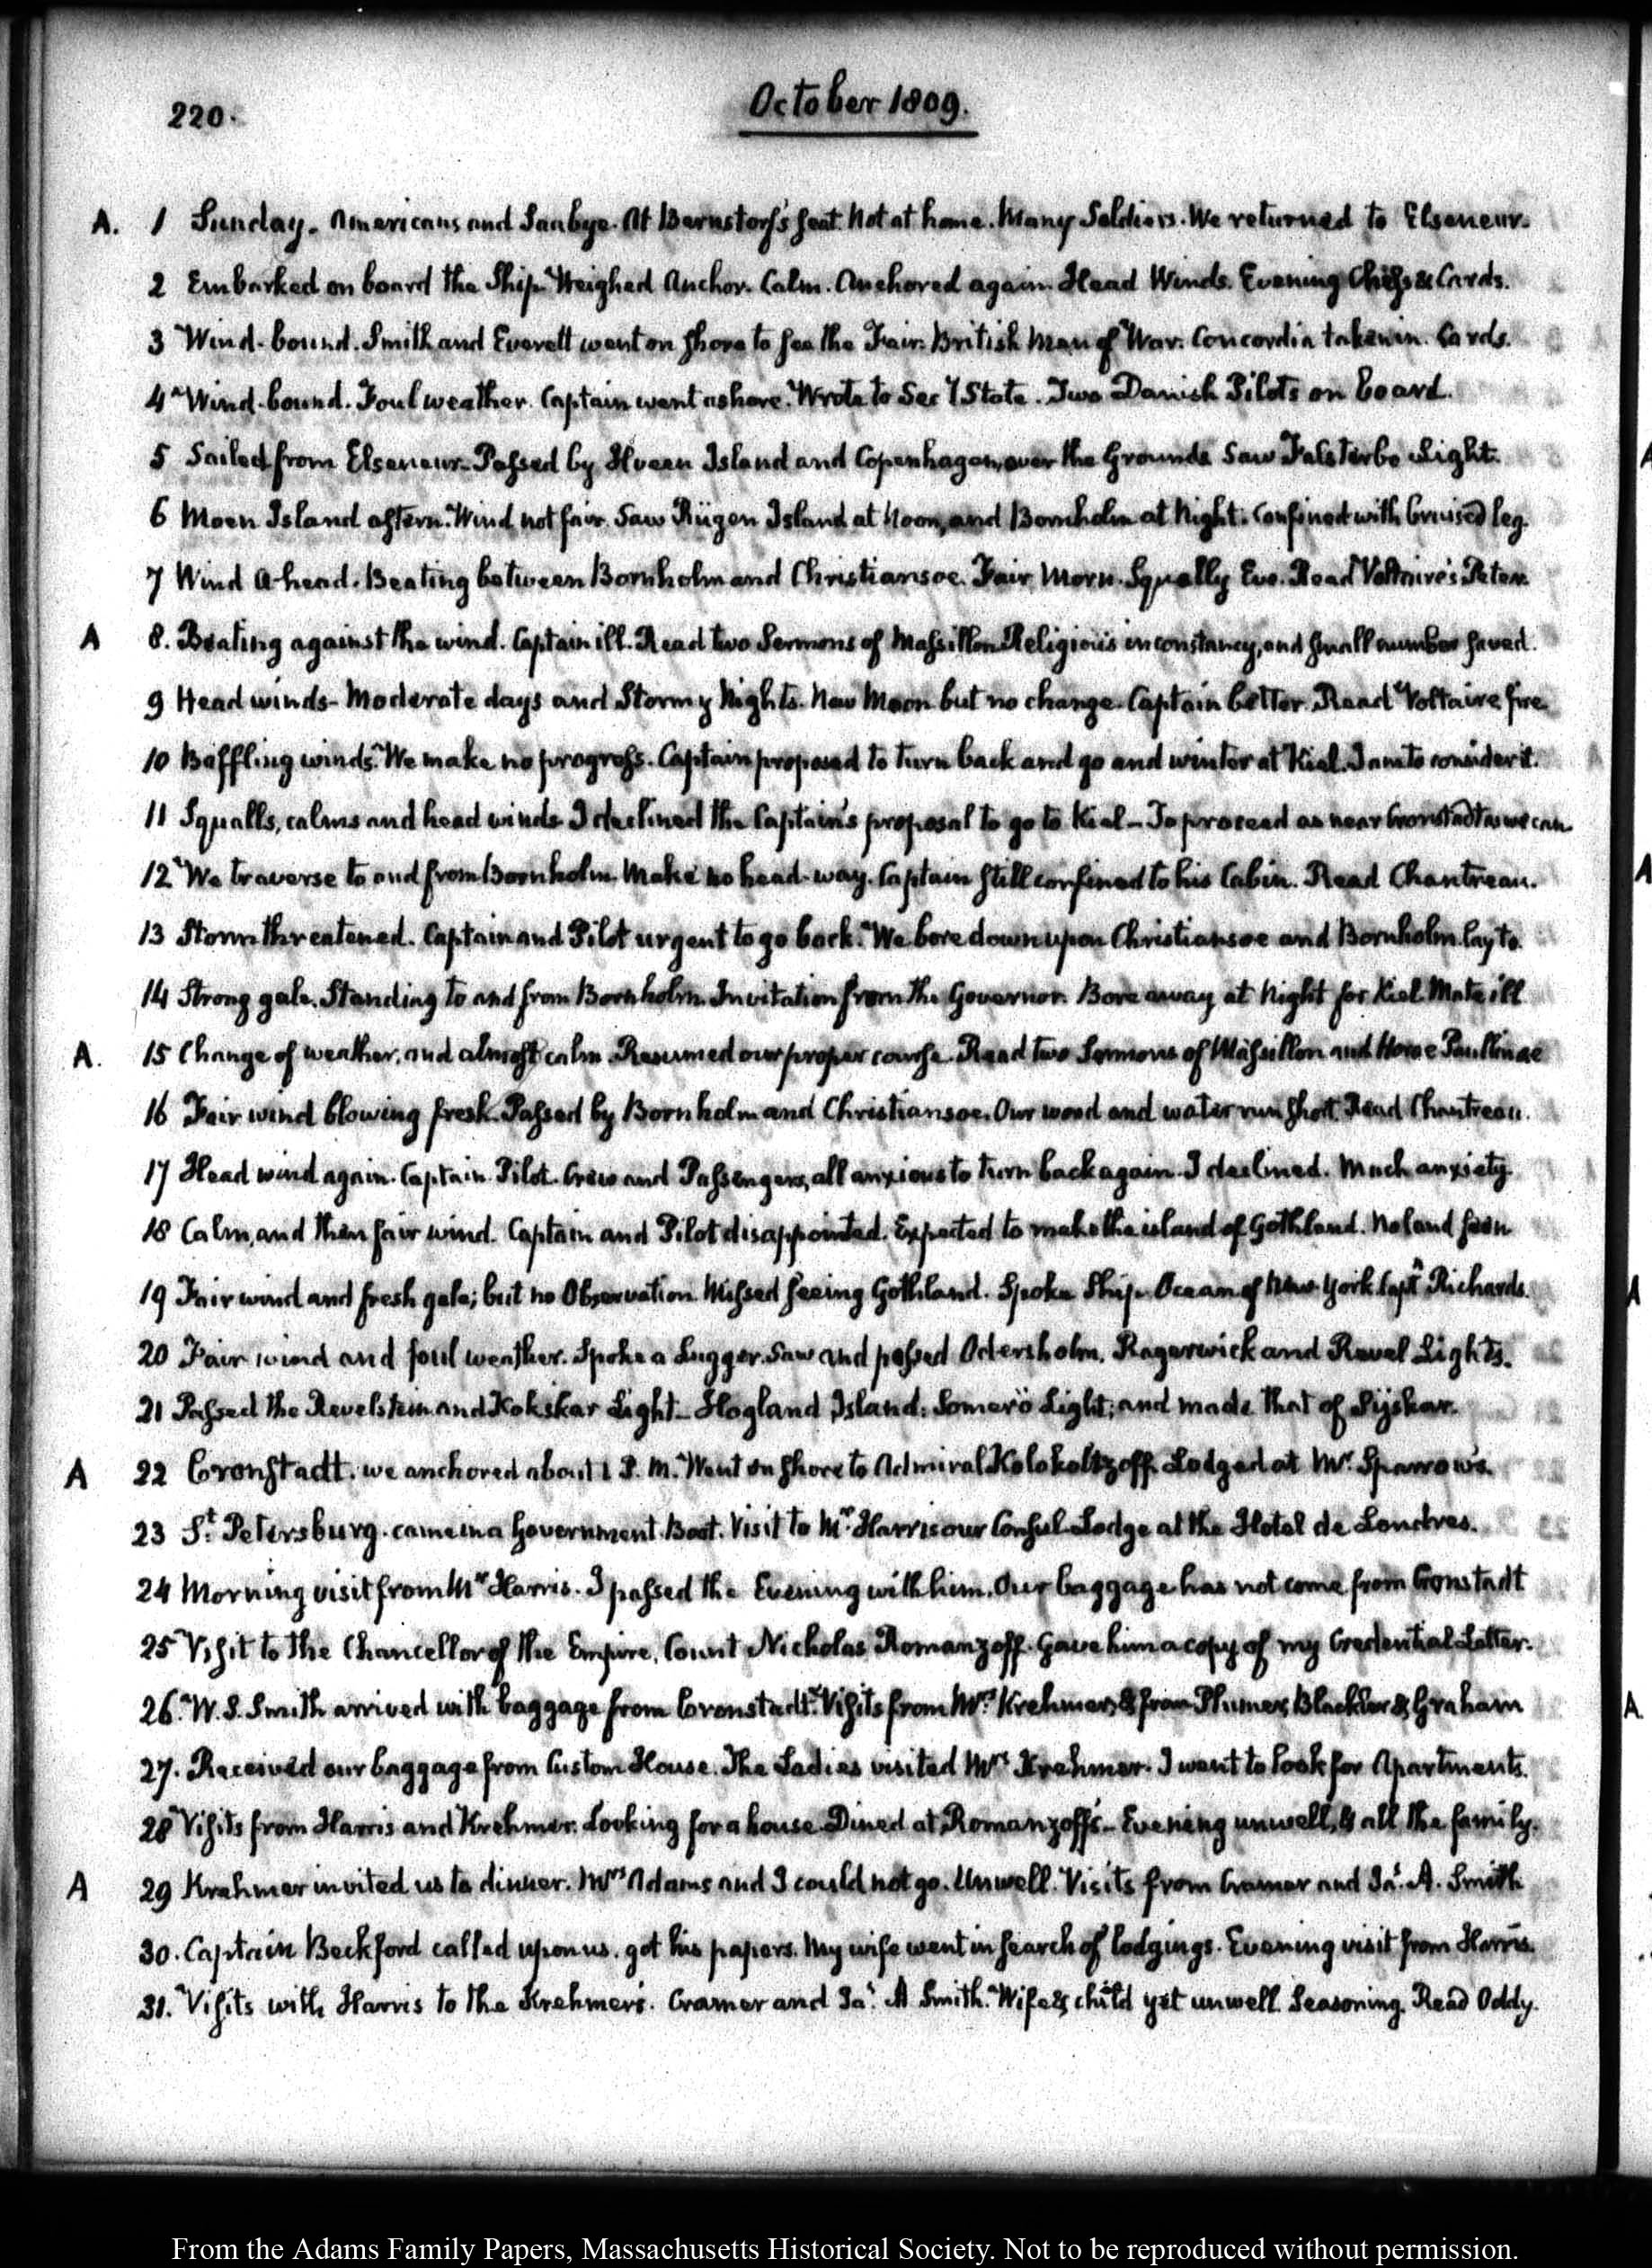 220.
October 1809.
A. 1 Sunday. Americans and Saabye. At Bernstorf's seat. Not at home. Many Soldiers. We returned to Elseneur.
2 Embarked on board the Ship. Weighed Anchor. Calm. Anchored again. Head Winds. Evening Chess & Cards.
3 Wind-bound. Smith and Everett went on shore to see the Fair. British Man of War. Concordia taken in. Cards.
4 Wind-bound. Foul weather. Captain went ashore. Wrote to Sec'y State. Two Danish Pilots on board.
5 Sailed from Elseneur. Passed by Hveen Island and Copenhagen, over the Grounds. Saw Falsterbo Light.
6 Moen Island astern. Wind not fair. Saw Rügen Island at Noon, and Bornholm at Night. Confined with bruised leg.
7 Wind A-head. Beating between Bornholm and Christiansoe. Fair Morn. Squally Eve. Read Voltaire's Peter.
A 8. Beating against the wind. Captain ill. Read two Sermons of Massillon. Religious inconstancy, and small number saved.
9 Head winds- Moderate days and Stormy Nights. New Moon but no change. Captain better. Read Voltaire fire
10 Baffling winds. We make no progress. Captain proposed to turn back and go and winter at Kiel. I am to consider it.
11 Squalls, calms and head winds. I declined the Captain's proposal to go to Kiel - To proceed as near Cronstadt as we can
12 We traverse to and from Bornholm. Make no head-way. Captain still confined to his Cabin. Read Chantreau.
13 Storm threatened. Captain and Pilot urgent to go back. We bore down upon Christiansoe and Bornholm. lay to.
14 Strong gale. Standing to and from Bornholm. Invitation from the Governor. Bore away at Night for Kiel. Mate ill
A. 15 Change of weather, and almost calm. Resumed our proper course. Read two Sermons of Massillon and Horae Paullinae
16 Fair wind blowing fresh. Passed by Bornholm and Christiansoe. Our wood and water run short. Read Chantreau.
17 Head wind again. Captain. Pilot. Crew and Passengers, all anxious to turn back again. I declined. Much anxiety.
18 Calm, and then fair wind. Captain and Pilot disappointed. Expected to make the island of Gothland. No land seen
19 Fair wind and fresh gale; but no Observation. Missed seeing Gothland. Spoke Ship Ocean of New York Capt.n Richards.
20 Fair wind and foul weather. Spoke a Lugger. Saw and passed Odersholm, Ragerwick and Revel Lights.
21 Passed the Revelstein and Kokskar Light - Hogland Island: Somerö Light; and made that of Sijskar.
A 22 Cronstadt. we anchored about 1 P.M. Went on Shore to Admiral Kolokoltzoff. Lodged at Mr. Sparrow's.
23 St. Petersburg. came in a Government Boat. Visit to Mr. Harris our Consul. Lodge at the Hotel de Londres.
24 Morning visit from Mr Harris. I passed the Evening with him. Our baggage has not come from Cronstadt
25 Visit to the Chancellor of the Empire, Count Nicholas Romanzoff. Gave him a copy of my Credential Letter.
26. W. S. Smith arrived with baggage from Cronstadt. Visits from Mrs. Krehmer, & from Plumer, Blackler & Graham
27. Received our baggage from Custom House. The Ladies visited Mrs. Krehmer. I went to look for Apartments.
28 Visits from Harris and Krehmer. Looking for a house. Dined at Romanzoff's - Evening unwell, & all the family.
A 29 Krahmer invited us to dinner. Mrs Adams and I could not go. Unwell. Visits from Cramer and Ja's. A. Smith
30. Captain Beckford called upon us. got his papers. My wife went in search of lodgings. Evening visit from Harris.
31. Visits with Harris to the Krehmers. Cramer and Ja's. A Smith. Wife & child yet unwell. Seasoning. Read Oddy.
From the Adams Family Papers, Massachusetts Historical Society. Not to be reproduced without permission.